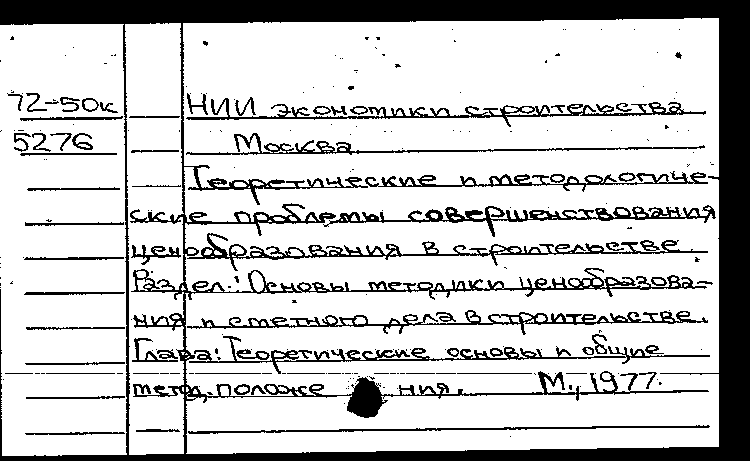 72-50к НИИ экономики строительства
5276 Москва.
Теоретические и методологиче-
ские проблемы совершенствования
ценообразования в строительстве.
Раздел.: Основы методики ценообразова-
ния и сметного дела в строительстве.
Глава: Теоретические основы и общие
метод. положе ния. М., 1977.